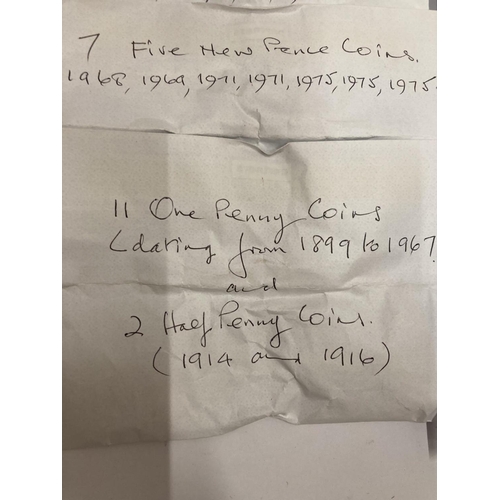 7 Five New Pence Coins.
1968, 1969, 1971, 1971, 1975, 1975, 1975.
11 One Penny Coins
(dating from 1899 to 1967
and
2 Half Penny Coins.
(1914 and 1916)